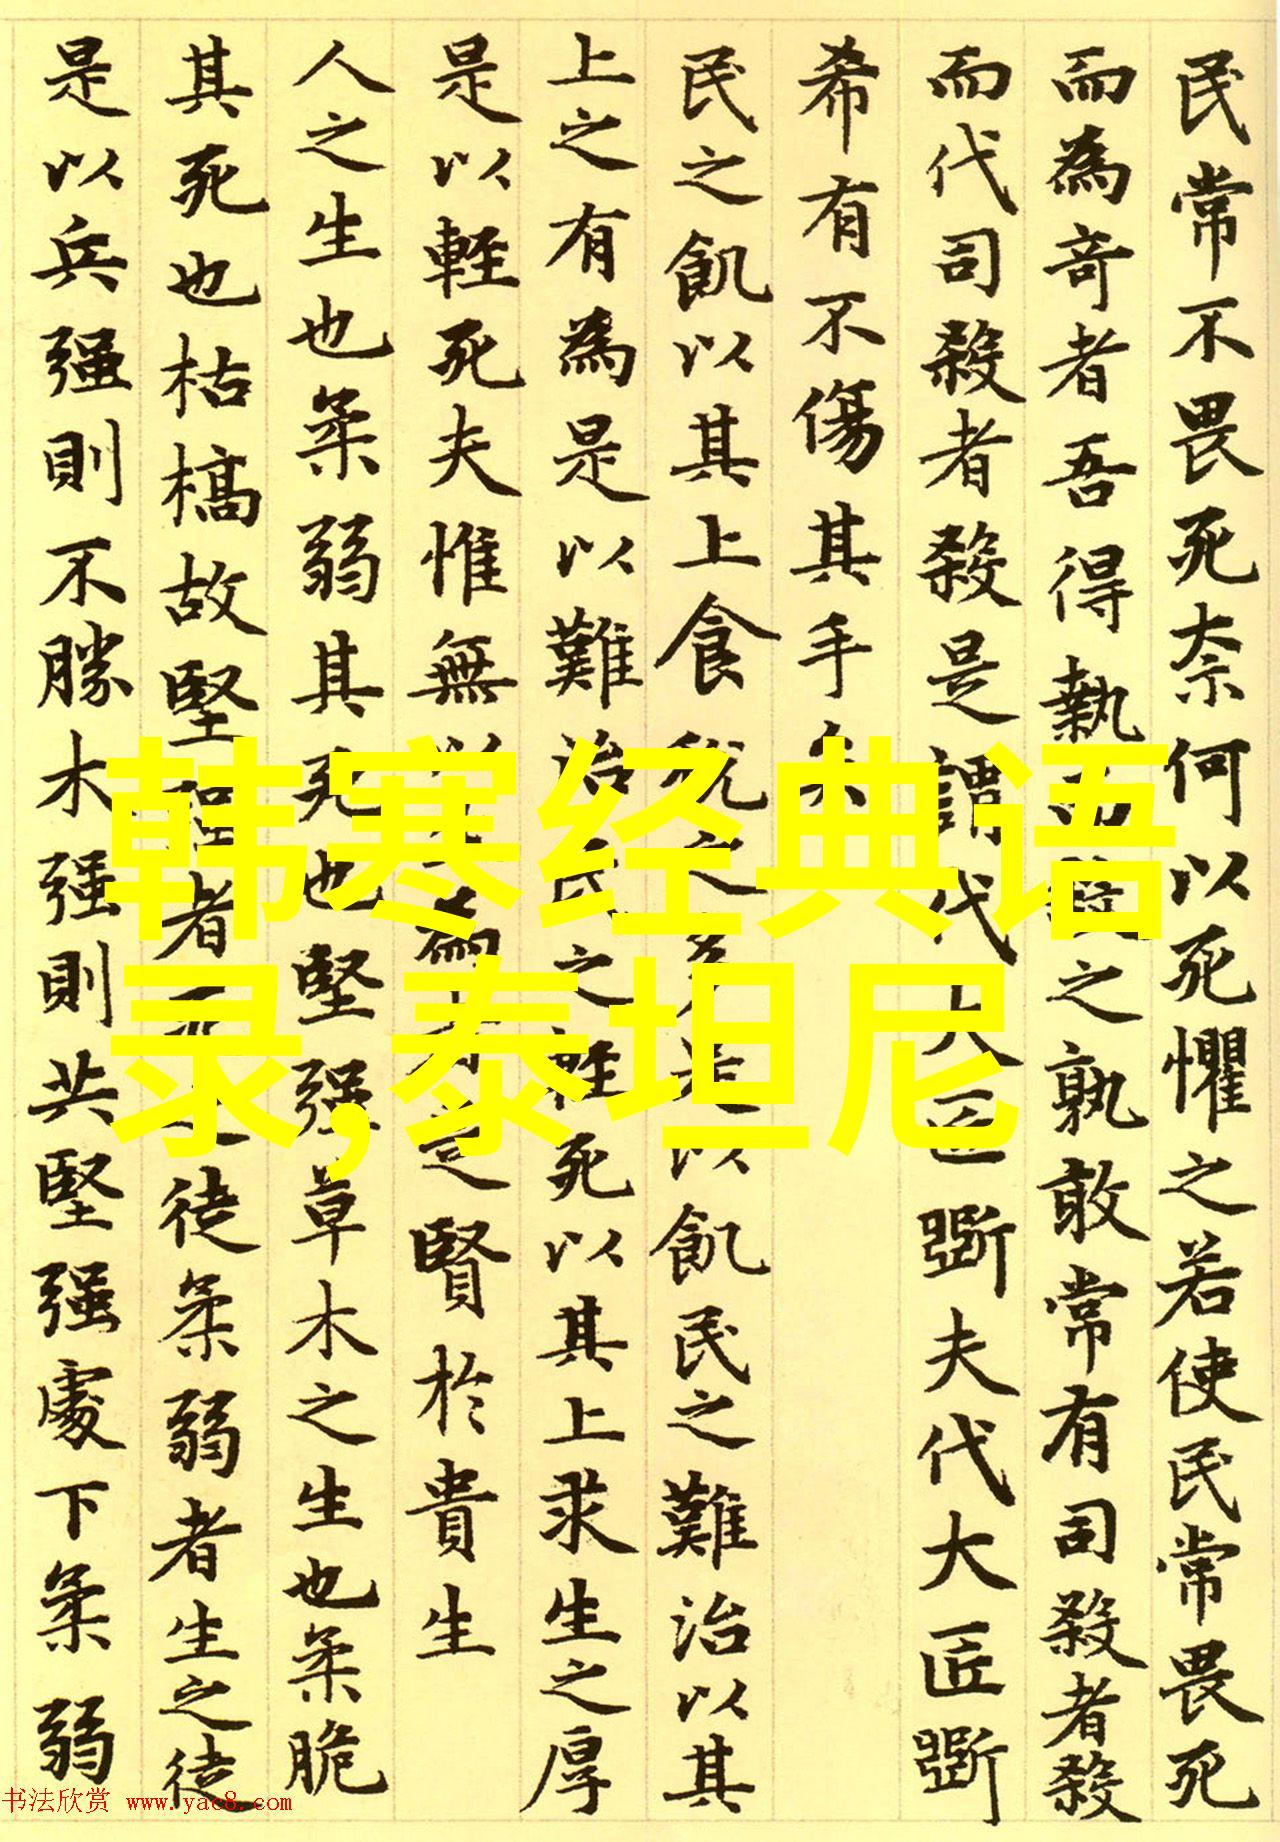 民常不畏死奈何以死懼之若使民常畏死
而為奇者吾得執而殺之孰敢常有司殺者殺
而代司殺者殺是謂代大匠斲夫代大匠斲
希有不傷其手矣
民之飢以其上食稅之多是以飢民之難治以其
上之有為是以難治民之輕死以其上求生之厚
是以輕死夫惟無以生為者是賢於貴生
人之生也柔弱其死也堅强草木之生也柔脆
其死也枯槁故堅强者死之徒柔弱者生之徒
是以兵强則不勝木强則共堅强處下柔弱
韩寒经典语
录,泰坦尼
书法欣赏 www.yac8.com